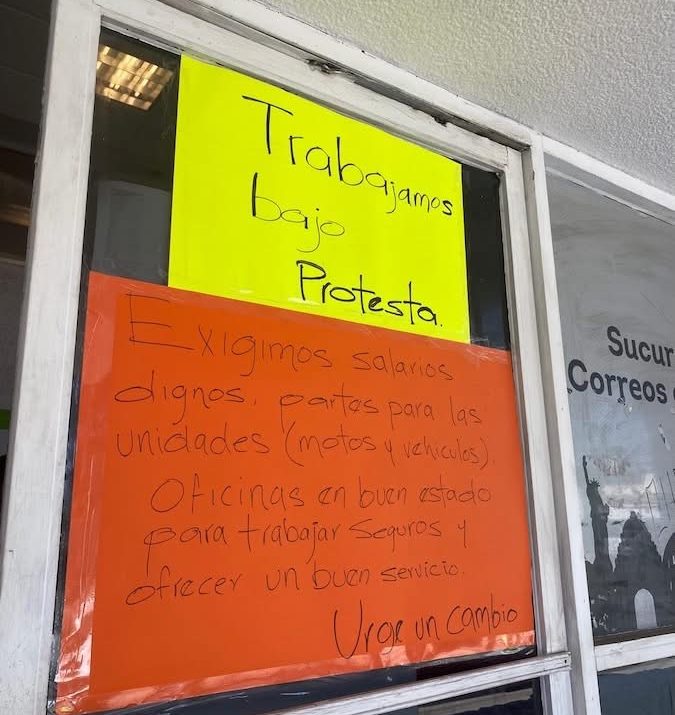 Trabajamos
bajo
Protesta.
Exigimos salarios
dignos, partes para las
unidades (motos y vehiculos).
Oficinas en buen estado
para trabajar seguros y
ofrecer un buen servicio.
Urge un cambio
Sucur
Correos